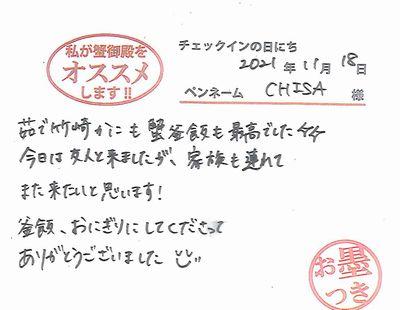 私が蟹御殿を
オススメ
します!!
チェックインの日にち
2021年11月18日
ペンネーム CHISA 様
茹で竹崎かにも蟹釜飯も最高でした
今日は友人と来ましたが、家族も連れて
また来たいと思います!
釜飯、おにぎりにしてくださって
ありがとうございました
お墨
つき